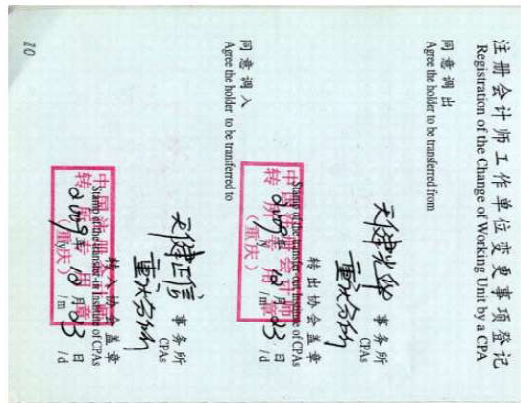 注册会计师工作单位变更事项登记
Registration of the Change of Working Unit by a CPA
同意调出
Agree the holder to be transferred from
天健光华
重庆分所
事务所
CPAs
转出协会盖章
Stamp of the transfer-out Institute of CPAs
中国注册会计师
转所专用章
(重庆)
2009年10月23日
/y /m /d
同意调入
Agree the holder to be transferred to
天健正信
重庆分所
事务所
CPAs
转入协会盖章
Stamp of the transfer-in Institute of CPAs
中国注册会计师
转所专用章
(重庆)
2009年10月23日
/y /m /d
10